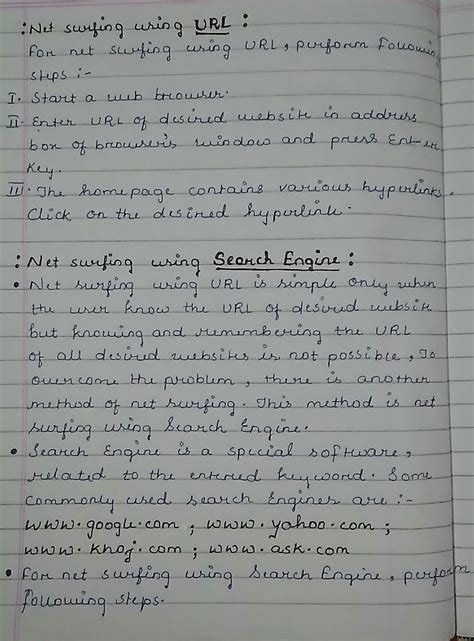 : Net surfing using URL :
For net surfing using URL, perform following
steps :-
I. Start a web browser.
II. Enter URL of desired website in address
box of browser's window and press Enter
Key.
III. The homepage contains various hyperlinks.
Click on the desired hyperlink.
: Net surfing using Search Engine :
• Net surfing using URL is simple only when
the user know the URL of desired website
but knowing and remembering the URL
of all desired websites is not possible, To
overcome the problem, there is another
method of net surfing. This method is net
surfing using Search Engine.
• Search Engine is a special software,
related to the entered keyword. Some
commonly used search Engines are :-
www.google.com ; www.yahoo.com ;
www.khoj.com ; www.ask.com
• For net surfing using Search Engine, perform
following steps.